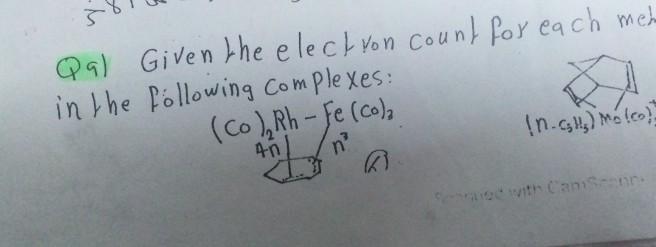 Qa) Given the electron count for each
in the following complexes:
(Co)₂Rh-Fe(Co)₃
4n n³
(n-C₅H₅) Mo(co)
Scanned with CamScanner